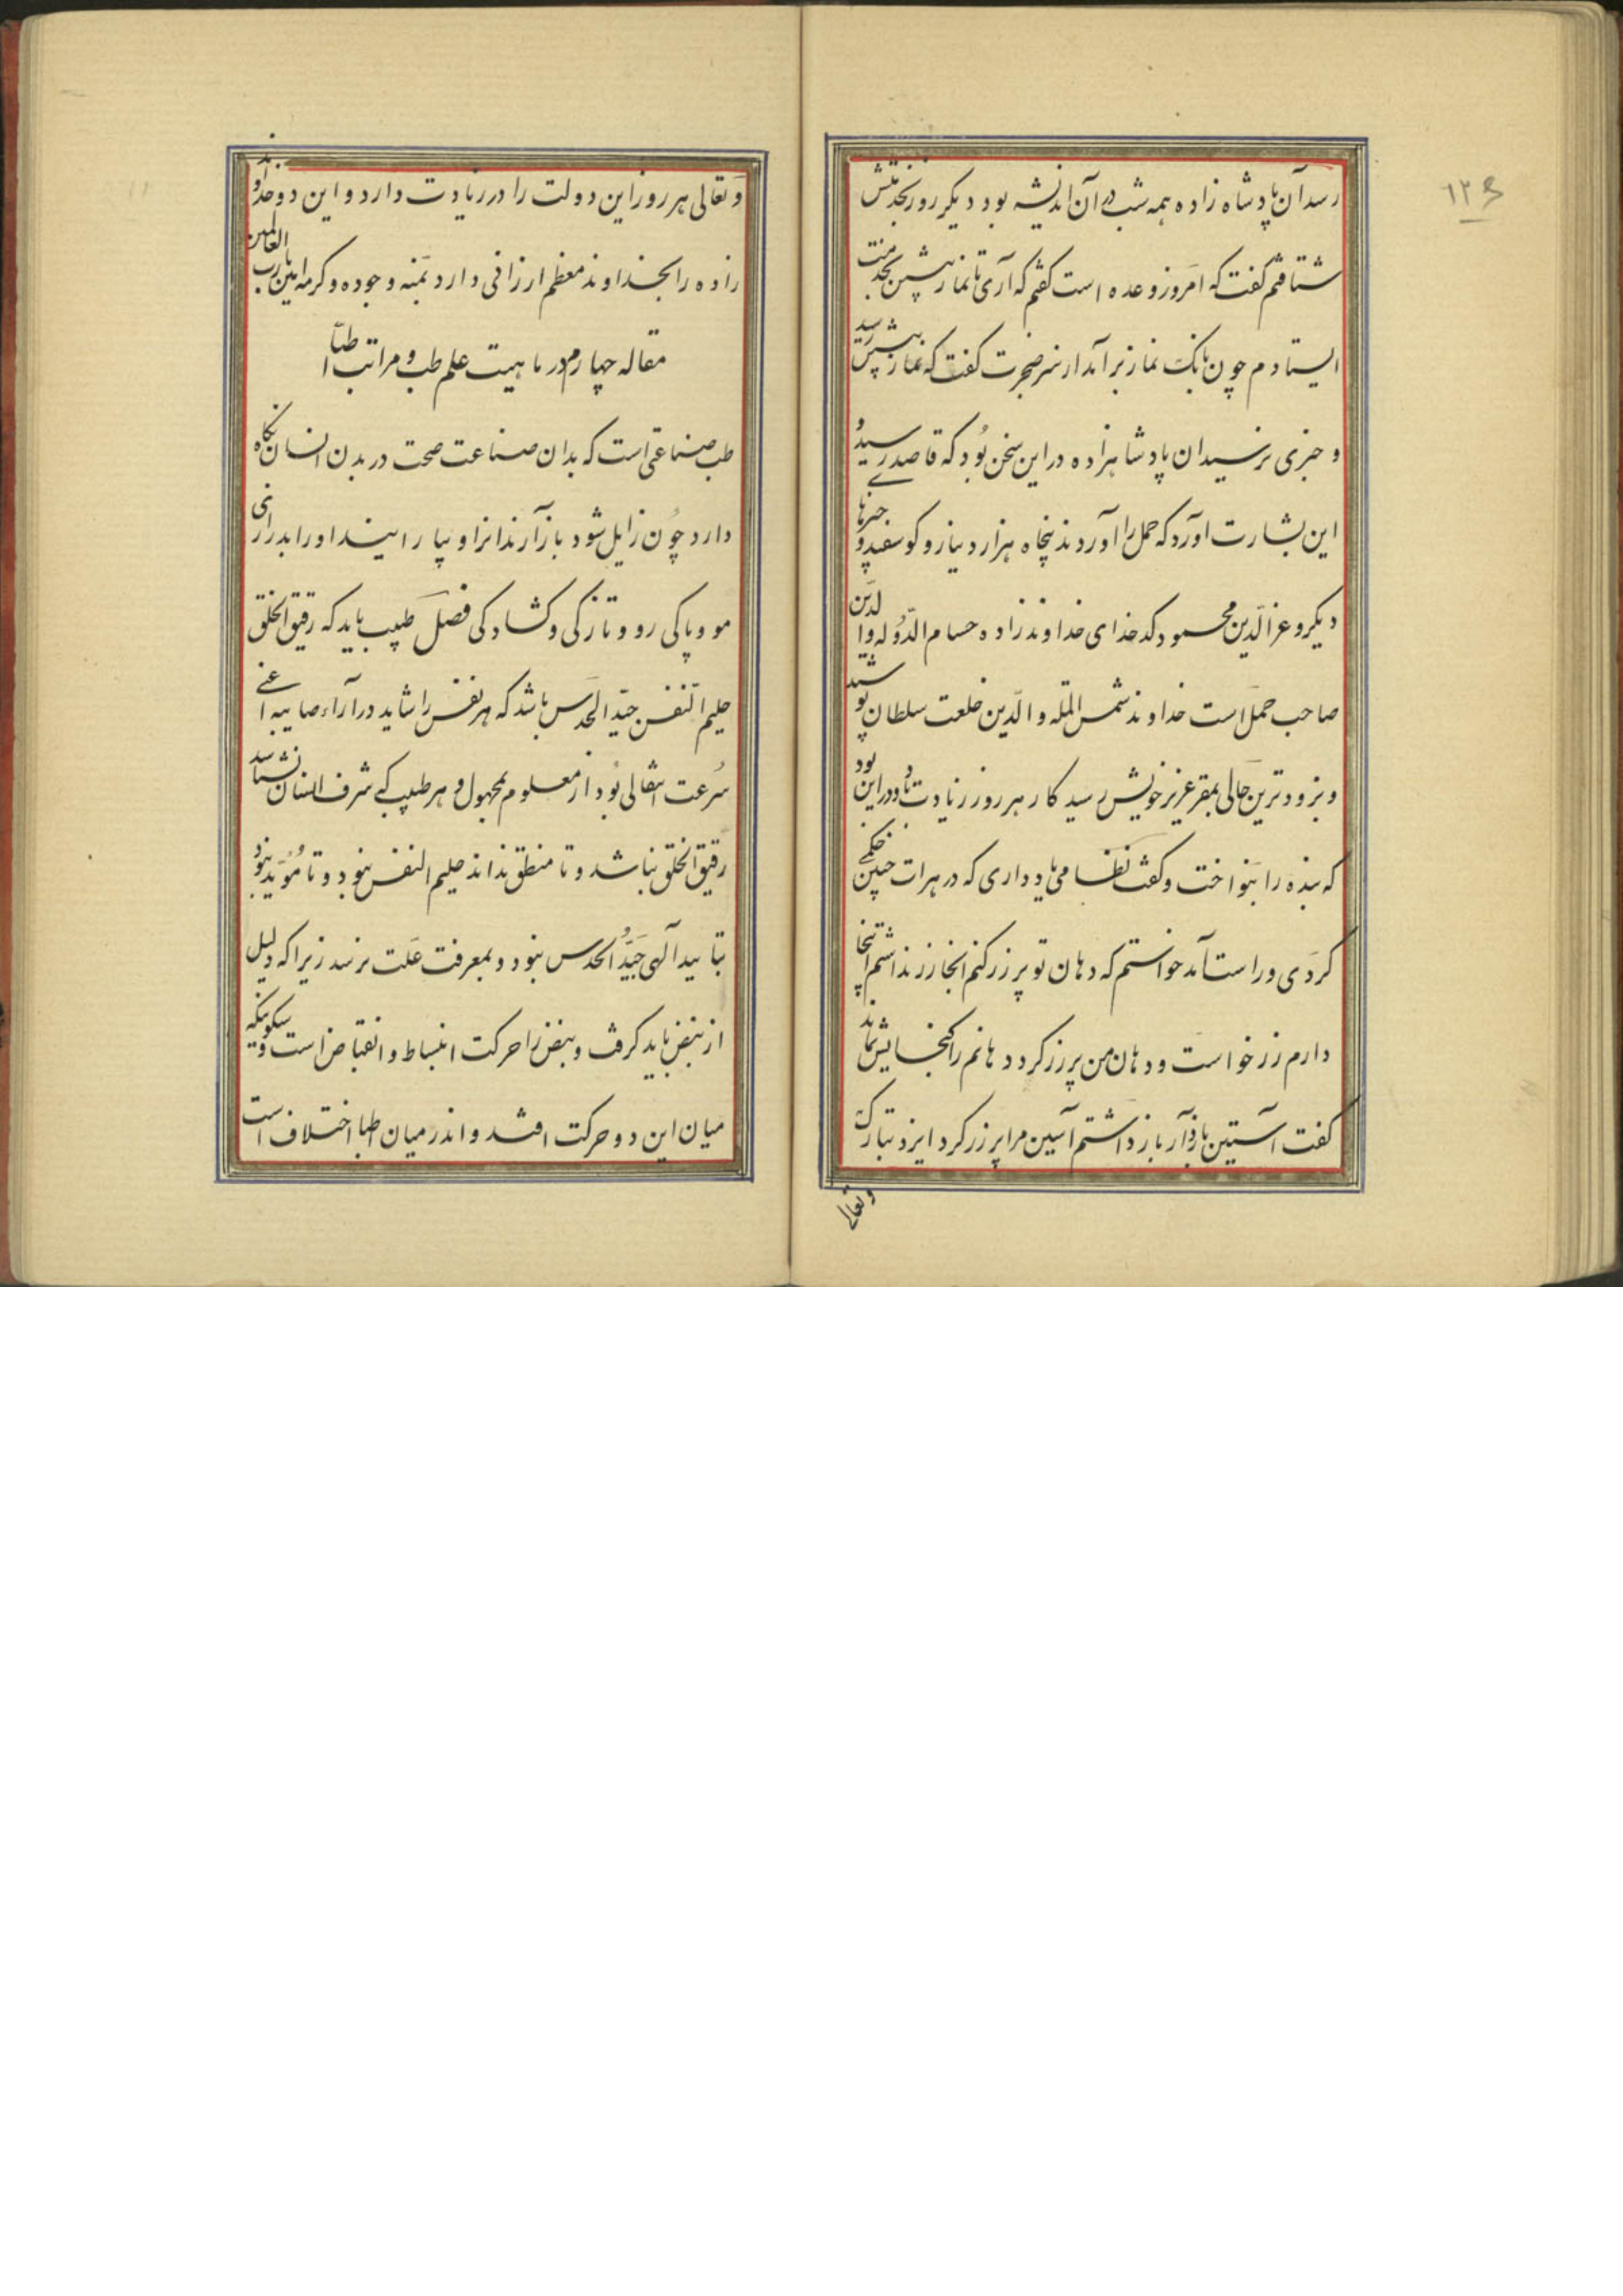 ۱۲۶
رسد آن پادشاه زاده همه شب در آن اندیشه بود دیگر روز بخدمتش
شتافتم گفت که امروز وعده است گفتم که آری تا نماز پیشین بخدمت
ایستادم چون بانک نماز برآمد از سر ضجرت گفت که نماز پیشین رسید
و خبری نرسید آن پادشاهزاده در این سخن بُود که قاصدی رسید و
این بشارت آورد که حمل را آوردند پنجاه هزار دینار و گوسفند و خبرها
دیگر و عزالدّین محمود کدخدای خداوند زاده حسام الدّوله والدّین
صاحب حمل است خداوند شمس المله و الدّین خلعت سلطان پوشید
و بزودترین حالی بمقر عزیز خویش رسید کار هر روز زیادت بُود و در این بود
که بنده را بنواخت و گفت نظامی یاد داری که در هرات چنین حکمی
کردی و راست آمد خواستم که دهان تو پر زر کنم آنجا زر نداشتم اینجا
دارم زر خواست و دهان من پر زر کرد دهانم را گنجایش نماند
گفت آستین باز دار باز داشتم آستین مرا پر زر کرد ایزد تبارک
و تعالی
و تعالی هر روز این دولت را در زیادت دارد و این دو خداوند
زاده را بخداوند معظم ارزانی دارد بمنه و جوده و کرمه امین یا رب العالمین
مقاله چهارم در ماهیت علم طب و مراتب اطبّا
طب صناعتی است که بدان صناعت صحت در بدن انسان نگاه
دارد چُون زایل شود باز آرند انرا و بیارایند او را بدرازی
مو و پاکی رو و تازگی و گشادگی فصل طبیب باید که رقیق الخلق
حلیم النّفس جیّد الحدس باشد که هر نفس را شاید در آراء صایبه اعنی
سُرعت انتقالی بُود از معلوم بمجهول و هر طبیب که شرف انسان نشناسد
رقیق الخلق نباشد و تا منطق نداند حلیم النفس نبود و تا مُؤیّد نبود
بتایید آلهی جَیّدُ الحدس نبود و بمعرفت علت نرسد زیرا که دلیل
از نبض باید گرفت و نبض را حرکت انبساط و انقباض است و سکونیکه
میان این دو حرکت افتد و اندر میان اطبا اختلاف است